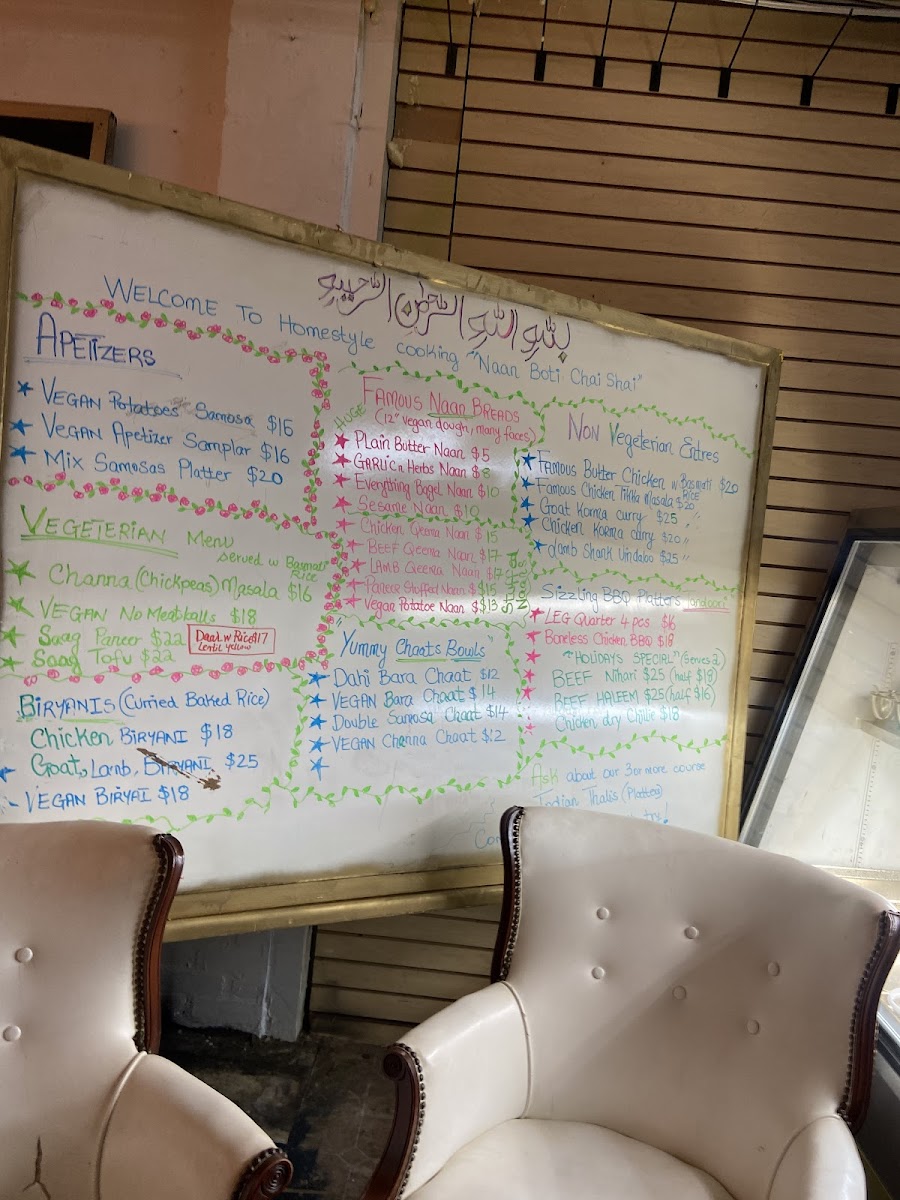 بسم الله الرحمن الرحيم
WELCOME TO Homestyle cooking "Naan Boti Chai Shai"
APETIZERS
VEGAN Potatoes Samosa $16
Vegan Apetizer Samplar $16
Mix Samosas Platter $20
VEGETERIAN Menu
served w Basmati
Rice
Channa (Chickpeas) Masala $16
VEGAN No Meatballs $18
Saag Paneer $22
Saag Tofu $22
Daal w Rice $17
Lentil yellow
BIRYANIS (Curried Baked Rice)
Chicken BIRYANI $18
Goat, Lamb, BIRYANI $25
- VEGAN BIRYAI $18
HUGE
FAMOUS Naan BREADS
(12" vegan dough, many faces)
Plain Butter Naan $5
GARLIC n Herbs Naan $8
Everything Bagel Naan $10
Sesame Naan $10
Chicken Qeema Naan $15
BEEF Qeema Naan $17
LAMB Qeema Naan $17
Paneer Stuffed Naan $15
Vegan Potatoe Naan $13
Stuffed
Naans
"Yummy Chaats Bowls"
Dahi Bara Chaat $12
VEGAN Bara Chaat $14
Double Samosa Chaat $14
VEGAN Channa Chaat $12
NON Vegeterian Entres
Famous Butter Chicken w Basmati $20
RICE
Famous Chicken Tikka Masala $20
Goat Korma curry $25 "
Chicken Korma curry $20 "
Lamb Shank Vindaloo $25 "
Sizzling BBQ Platters Tandoori
LEG Quarter 4 pcs $16
Boneless Chicken BBQ $18
"HOLIDAYS SPECIAL" (Serves 2)
BEEF Nihari $25 (half $18)
BEEF HALEEM $25 (half $16)
Chicken dry Chilie $18
Ask about our 3 or more course
Indian Thalis (Platters)
try!